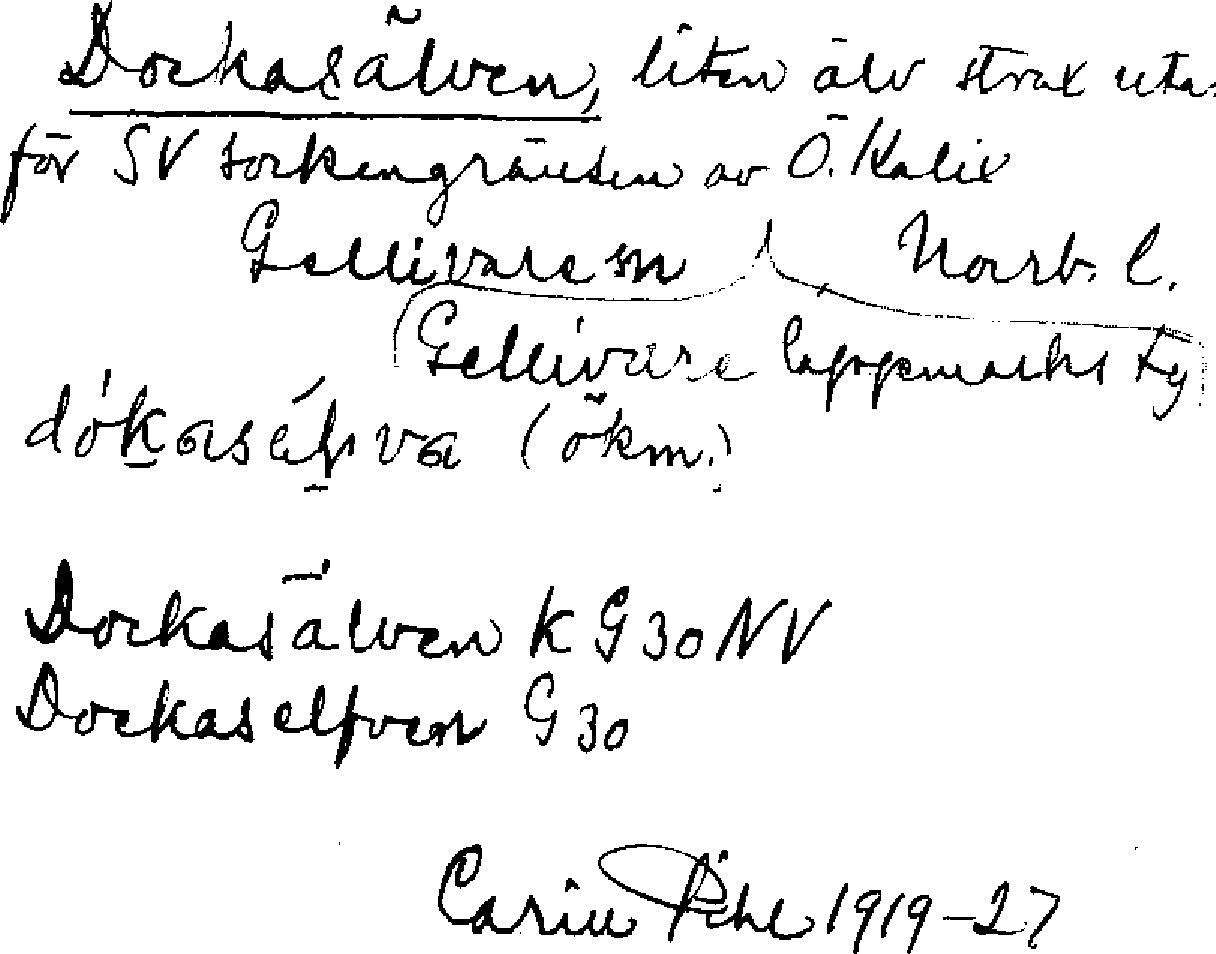 Dockasälven, liten älv strax uta-
för SV sockengränsen av Ö. Kalix
Gellivare sn Norrb. l.
Gellivare lappmarks tg
dókasélva (ökm.)
Dockasälven K G 30 NV
Dockaselfven G 30
Carin Pihl 1919-27